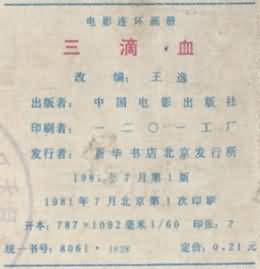 电影连环画册
三滴血
改编：王逸
出版者：中国电影出版社
印刷者：一二〇一工厂
发行者：新华书店北京发行所
1981年7月第1版
1981年7月北京第1次印刷
开本：787×1092毫米1/60 印张：7
统一书号：8061·1828 定价：0.21元